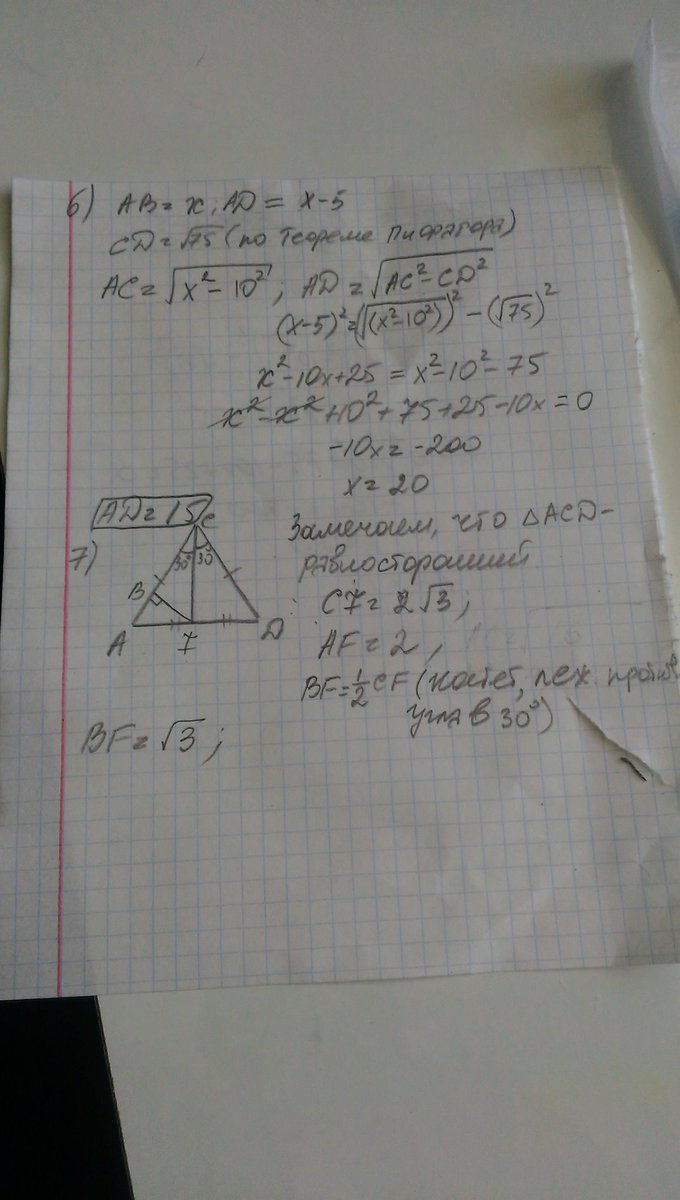 6) AB = x, AD = x-5
CD = √75 (по теореме Пифагора)
AC = √(x² - 10²); AD = √(AC² - CD²)
(x-5)² = (√(x²-10²))² - (√75)²
x² - 10x + 25 = x² - 10² - 75
x² - x² + 10² + 75 + 25 - 10x = 0
-10x = -200
x = 20
AD = 15
7)
C
30° 30°
B
A F D
Замечаем, что △ACD-
равносторонний
CF = 2√3;
AF = 2,
BF = 1/2 CF (катет, леж. против
угла в 30°)
BF = √3;